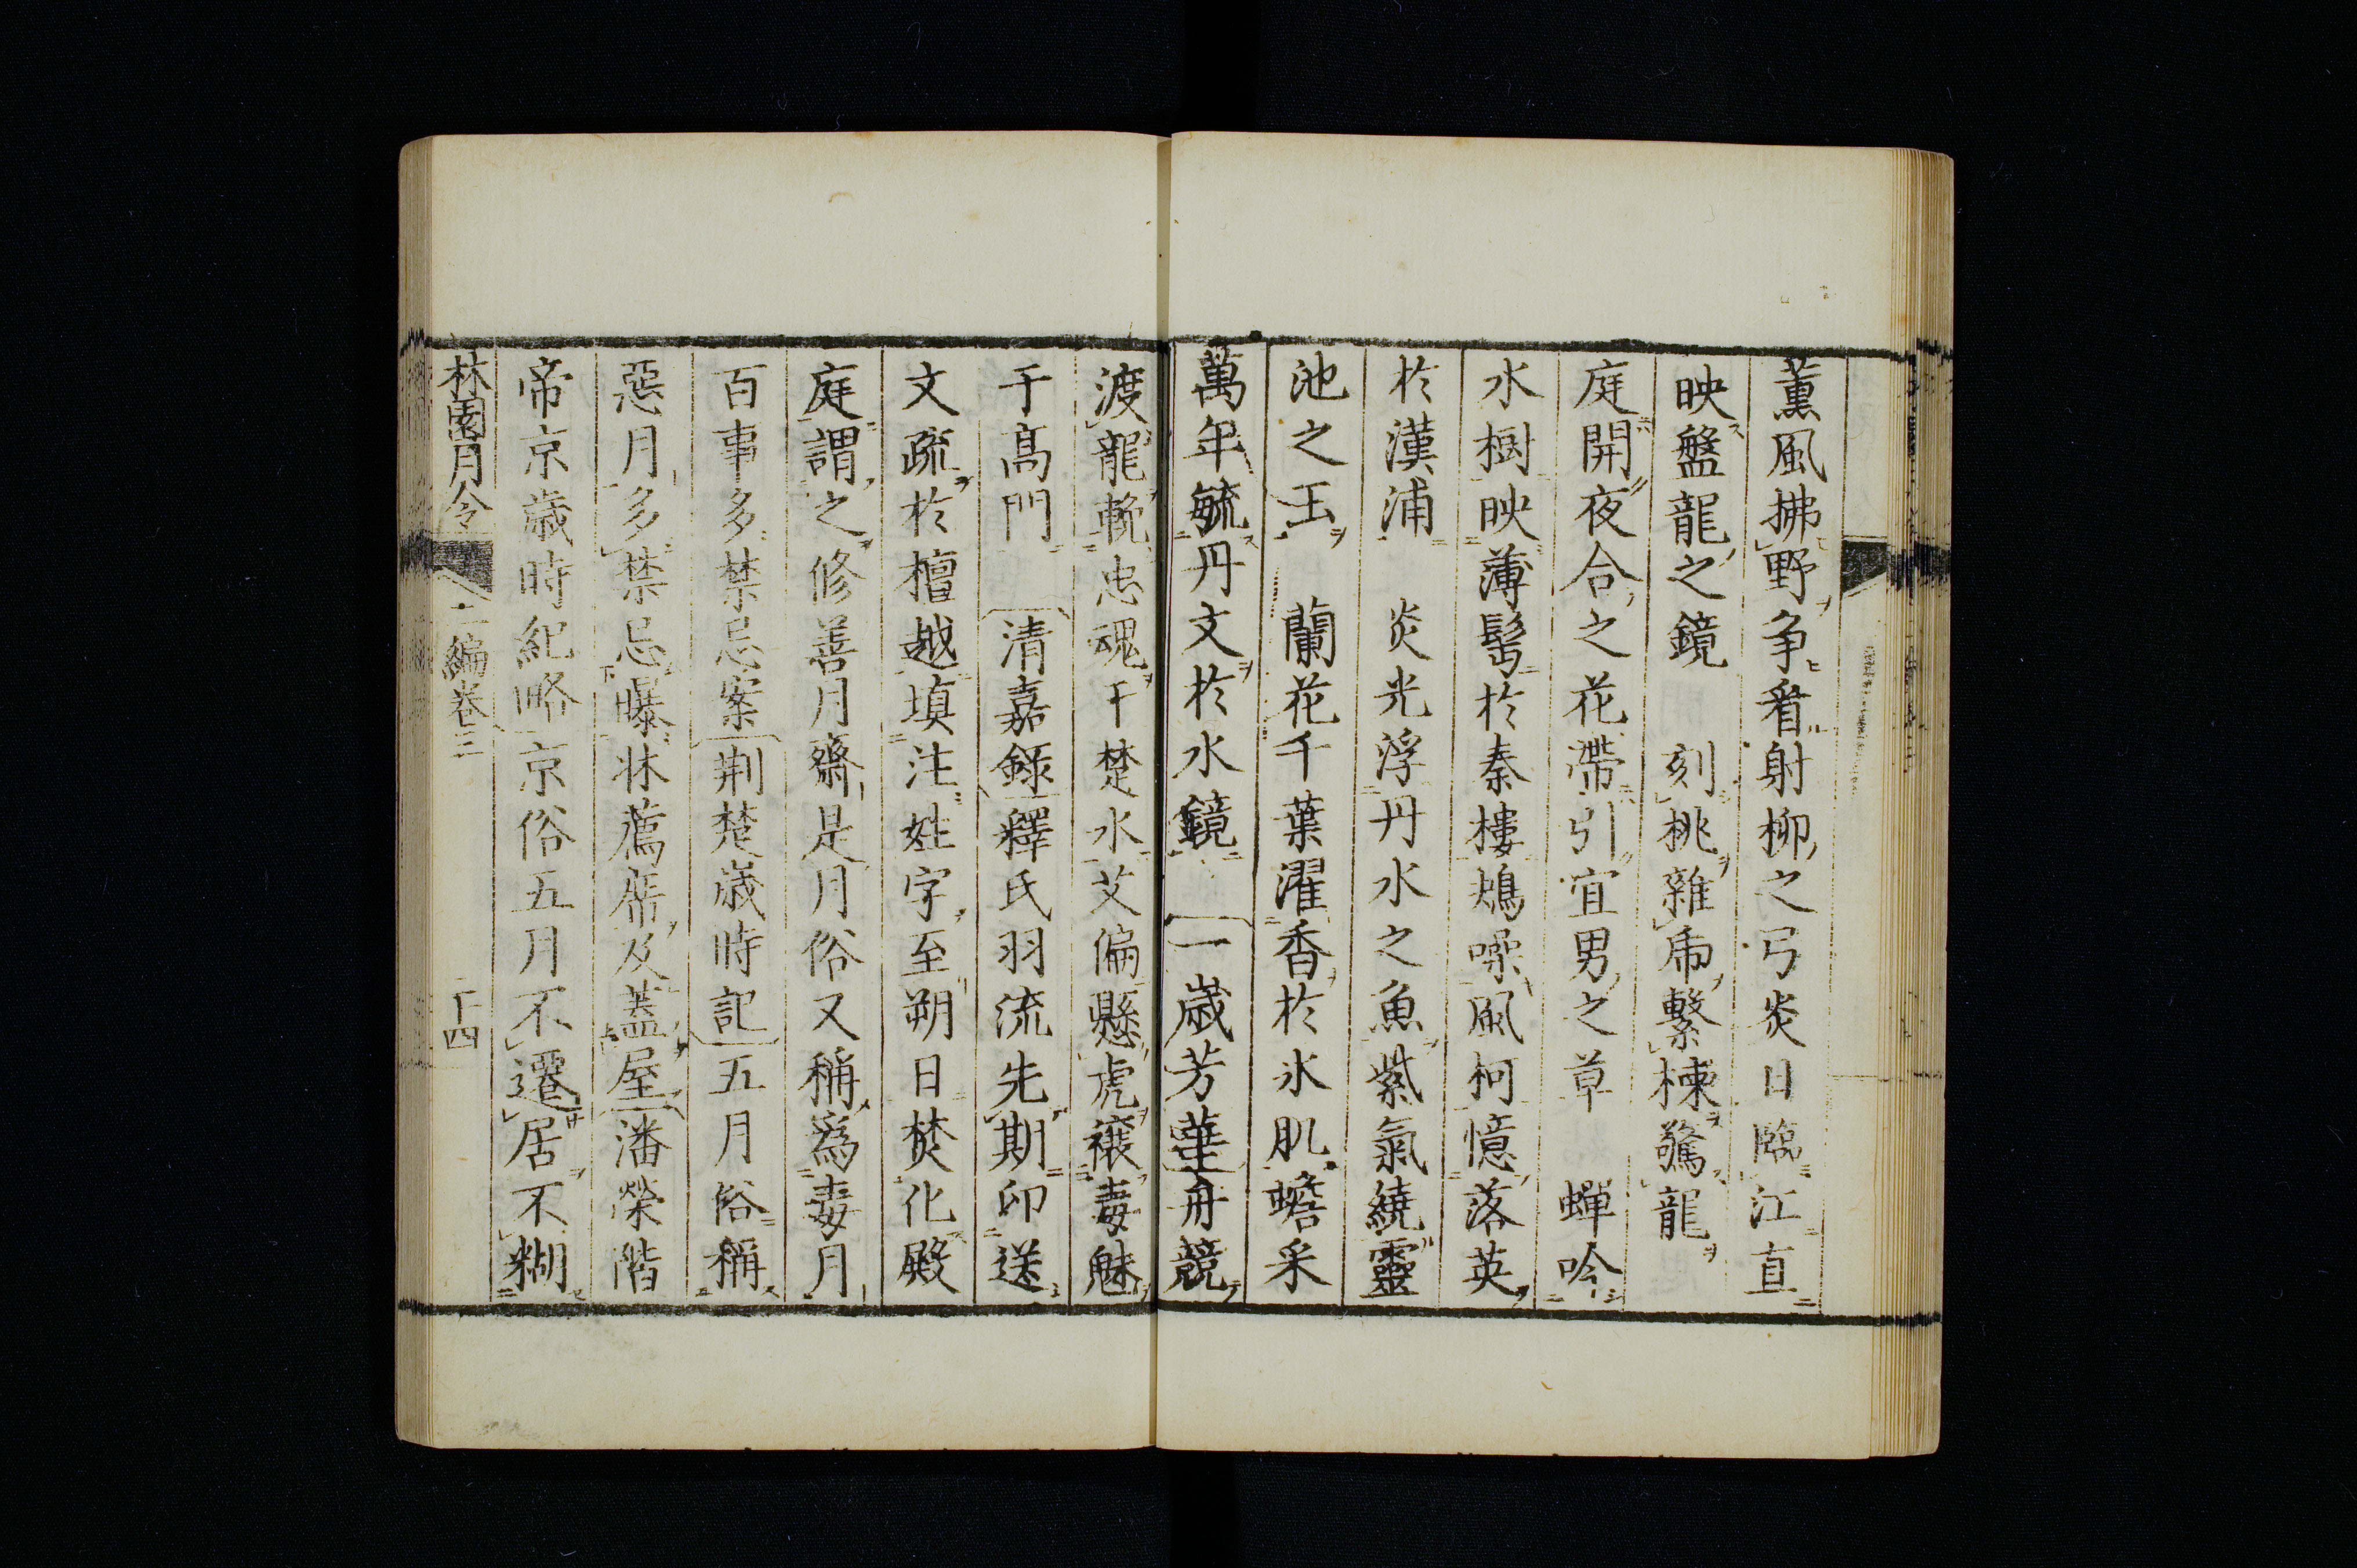 薫風拂野争看射柳之弓炎日臨江直
映盤龍之鏡　刻桃雜帋繋楝驚龍
庭開夜合之花滯引宜男之草　蟬吟
水樹映薄髩於秦樓鴆噪風柯憶落英
於漢浦　炎光浮丹水之魚紫氣繞靈
池之玉　蘭花千葉濯香於氷肌蟾采
萬年毓丹文於水鏡　一歳芳華舟競
渡龍輓忠魂于楚水艾偏懸虎禳毒魅
于高門　清嘉錄釋氏羽流先期印送
文疏於檀越填注姓字至朔日焚化殿
庭謂之修善月齋是月俗又稱爲毒月
百事多禁忌案荆楚歳時記五月俗稱
惡月多禁忌曝牀薦席及蓋屋潘榮階
帝京歳時紀略京俗五月不遷居不糊
林園月令　二編卷三　十四